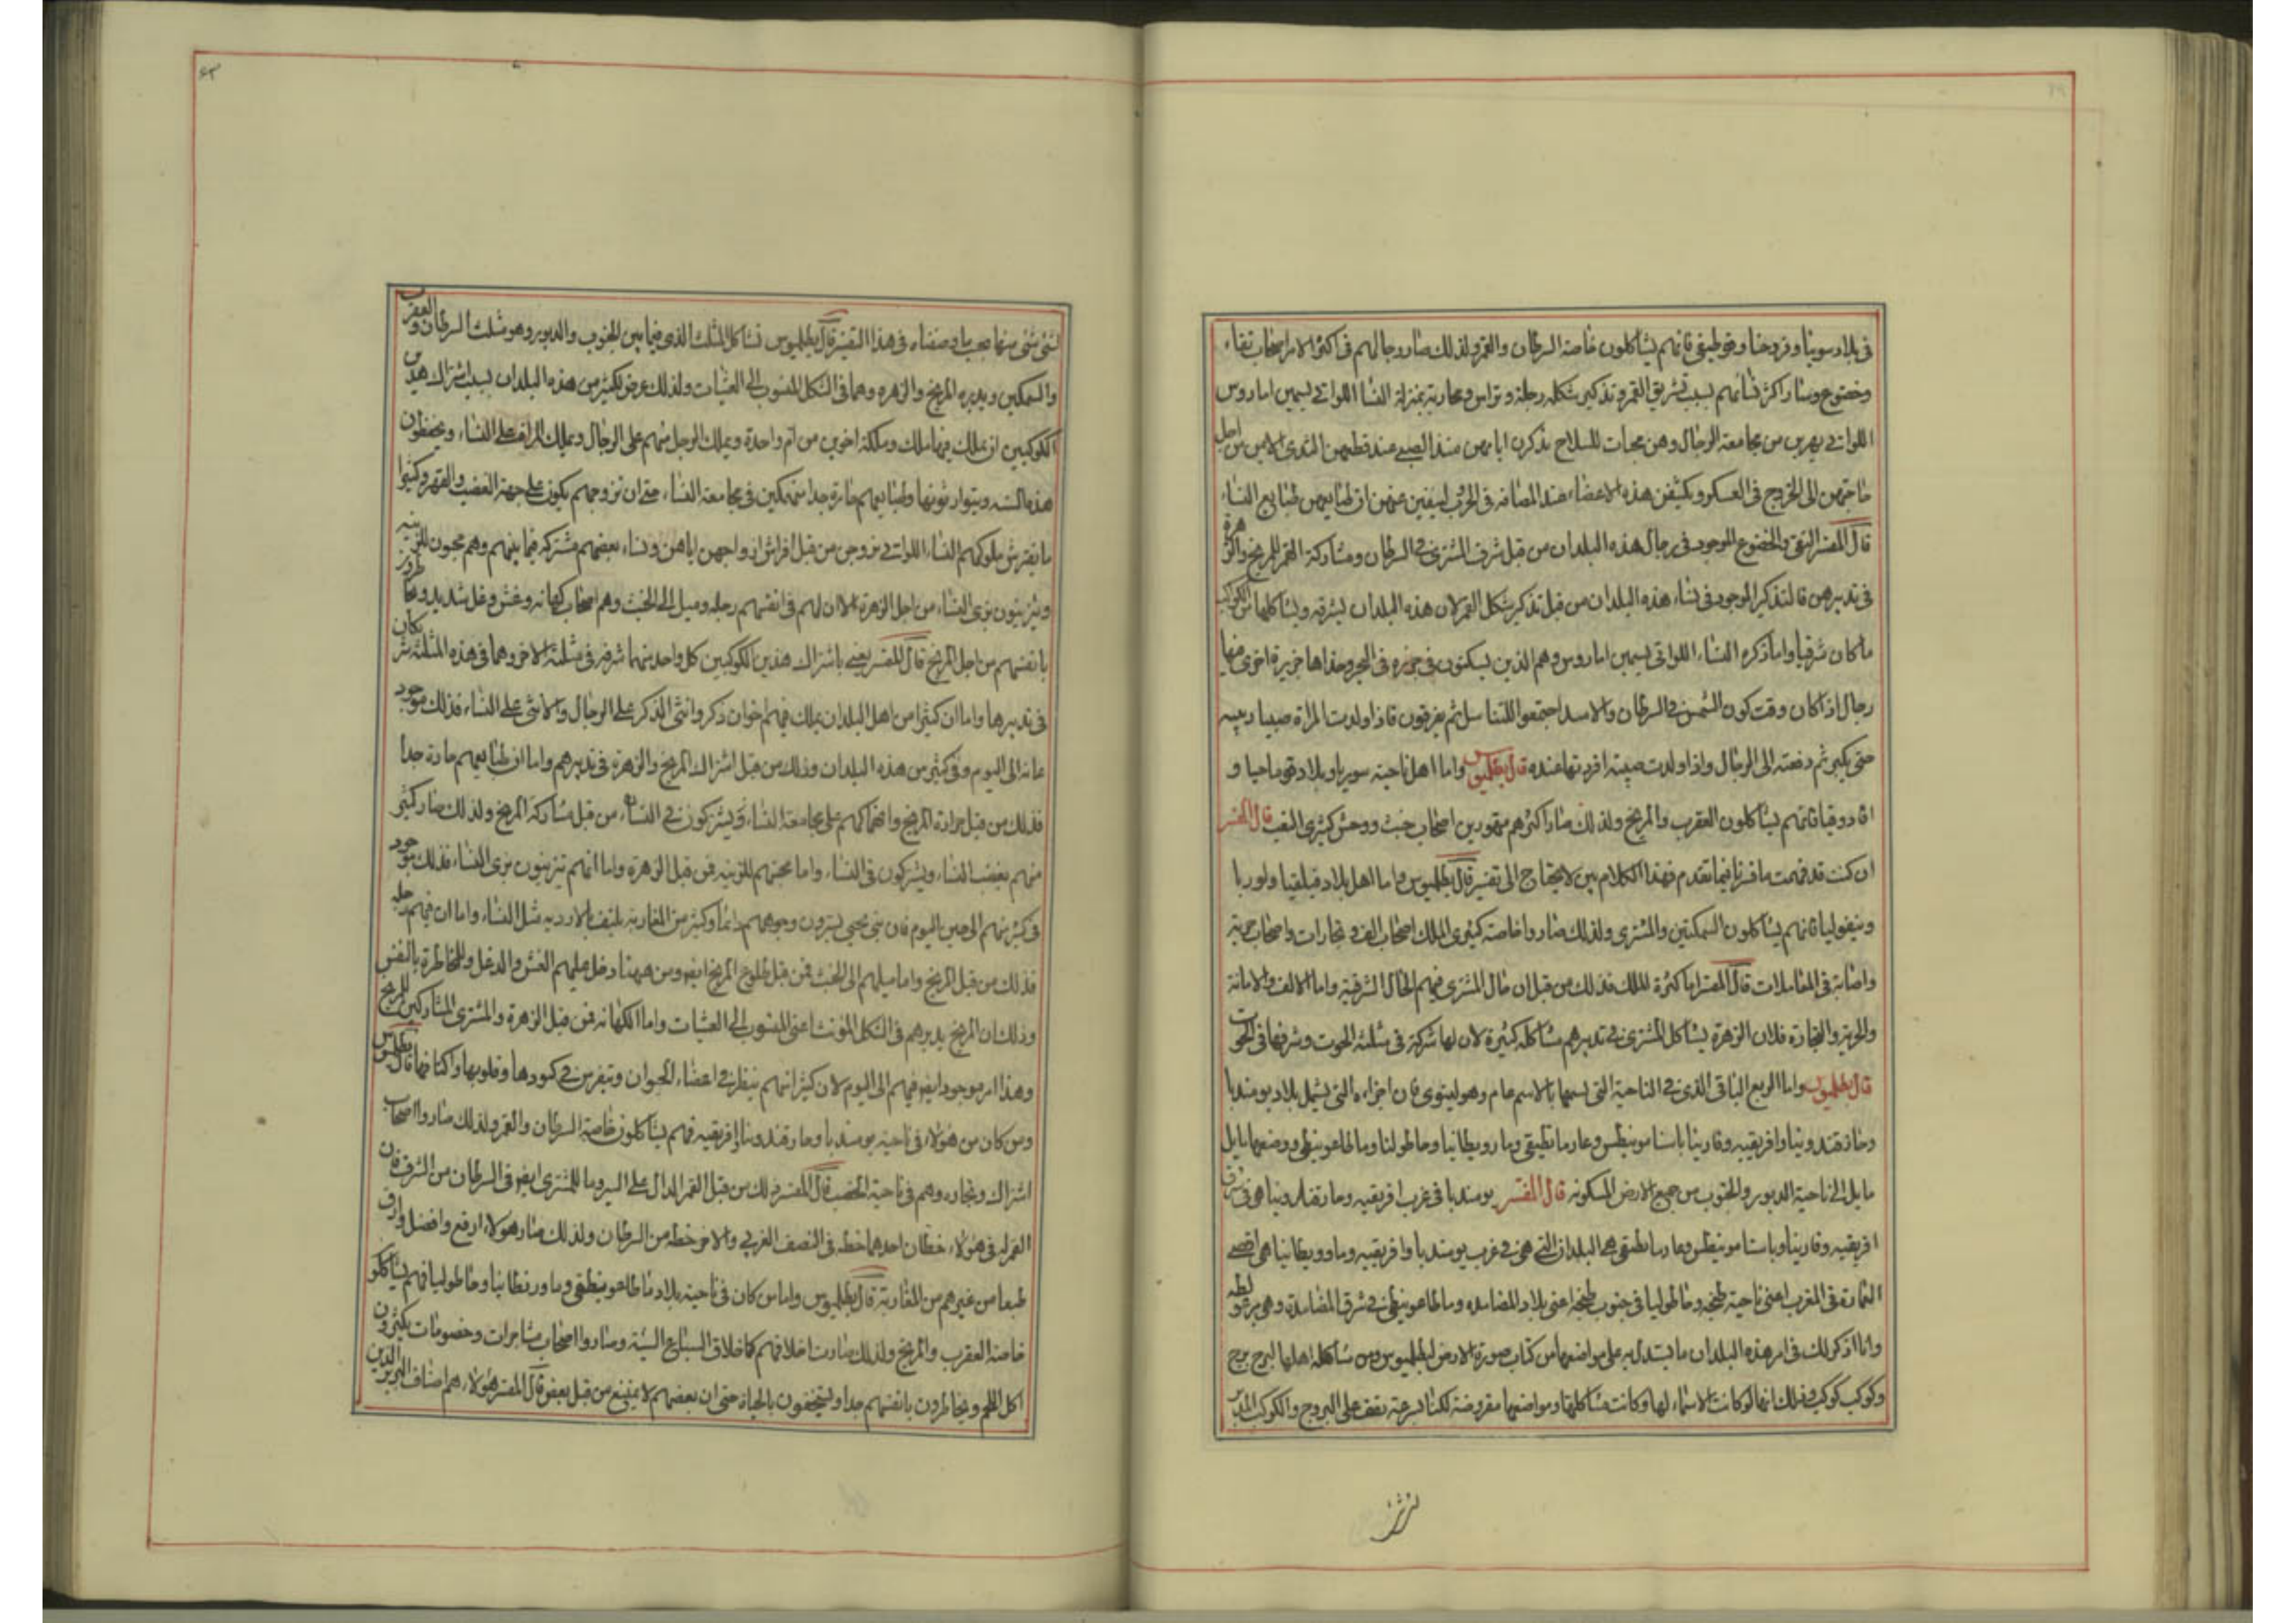 في بلاد سوينا وفروحنا وقوطيقي فانهم يشاكلون خاصة السرطان والقمر ولذلك صار رجالهم في اكثر الامر اصحاب تقاء
وخضوع وصار اكثر نسائهم بسبب تشريق القمر وتذكير شكله رجلة وتراس ومحاربة بمنزلة النسا اللواتي يسمين امازوس
اللواتي يهربن من مجامعة الرجال وهن محبات للسلاح يذكرن اياهن منذ الصبى عند قطعهن الثدي الايمن من اجل
حاجتهن الى الخروج في العسكر ويكشفن هذه الاعضاء عند المصافة في الحرب لينفين عنهن ان طبايعهن طبايع النساء
قال المفسر التقى والخضوع الموجود في رجال هذه البلدان من قبل شرف المشتري في السرطان ومشاركة القمر للمريخ والزهرة
في تدبيرهن فالتذكير الموجود في نساء هذه البلدان من قبل تذكير شكل القمر لان هذه البلدان شرقية ويشاكلها من الكواكب
ما كان شرقيا واما ذكره النساء اللواتي يسمين امازوس وهم الذين يسكنون في جزيرة في البحر وحذاها جزيرة اخرى فيها
رجال اذا كان وقت كون الشمس في السرطان والاسد اجتمعوا للتناسل ثم يفرقون فاذا ولدت المراة صبيا ربيه
حتى يكبر ثم دفعته الى الرجال واذا ولدت صبية افردتها عنده قال بطلميوس واما اهل ناحية سوريا وبلاد قوماحيا و
قادوقيا فانهم يشاكلون العقرب والمريخ ولذلك صار اكثرهم متهورين اصحاب خبث ووحش كثيري التعب قال المفسر
ان كنت قد فهمت ما فسرنا فيما تقدم فهذا الكلام بين لا يحتاج الى تفسير قال بطلميوس واما اهل بلاد قيليقيا ولوريا
ونيفوليا فانهم يشاكلون السمكتين والمشتري ولذلك صاروا خاصة كثيري الملك اصحاب الف وتجارات واصحاب حرية
واصابة في المعاملات قال المفسر اما كثرة الملك فذلك من قبل ان حال المشتري فيهم الحال الشرقية واما الالف والامانة
والحرية والتجارة فلان الزهرة يشاكل المشتري في تدبيرهم مشاكلة كثيرة لان لها شركة في مثلثة الحوت وشرفها في الحوت
قال بطلميوس واما الربع الباقي الذي في الناحية التي يسمها بالاسم عام وهو لينوى فان اجزاءه التي يشمل بلاد بومنديا
وحارقندونيا وافريقيه وقارينا باسنا مونيطس وعارما نطيقي وما رويطانيا وحاطولنا وماطاعونيطى ووضعها مايل
مايل الى ناحية الدبور والجنوب من جميع الارض المسكونه قال المفسر بومنديا في غرب افريقيه وما رتقندونيا هي في شرق
افريقيه وقارينا وباسنا مونيطس وعارما نطيقي هي البلدان التي هي في غرب بومنديا وافريقيه وما وويطانيا هي اقصى
العمارة في المغرب اعني ناحية طنجه وحاطوليا في جنوب طنجه اعني بلاد المصامده وماطاعونيطى في شرق المصامدة وهي برغولطه
وانا اذكر لك في امر هذه البلدان ما يستدل به على مواضعها من كتاب صورة الارض لبطلميوس ومن مشاكلة اهلها لبرج برج
وكوكب كوكب وذلك انها لو كانت الاسماء لها وكانت مشاكلتها ومواضعها مفروضة لكنا لسرعة نقف على البروج والكوكب المدبر
لشئ شئ منها بحسب ما وصفناه في هذا التفسير قال بطلميوس تشاكل المثلث الذي فيما بين الجنوب والدبور وهو مثلث السرطان والعقرب
والسمكتين ويدبره المريخ والزهره وهما في الشكل المنسوب الى العشيات ولذلك عرض لكثير من هذه البلدان بسبب اشتراك هذين
الكوكبين ان يملك فيها ملك وملكة اخوين من ام واحدة ويملك الرجل منهم على الرجال ويملك المراة على النساء ويحفظون
هذه السنه ويتوارثونها وطبايعهم حارة جدا منهمكين في مجامعة النساء حتى ان تزوجهم يكون على جهة الغصب والقهر وكثيرا
ما يفترش ملوكهم النساء اللواتي تزوجن من قبل افراش ازواجهن اياهن ونساء بعضهم مشتركة فيما بينهم وهم محبون للزينة
ويتزينون بزى النساء من اجل الزهرة الا ان لهم في انفسهم رجله وميل الى الخبث وهم اصحاب كهانه وغش وغل شديد ومخاطرون
بانفسهم من اجل المريخ قال المفسر يعني باشتراك هذين الكوكبين كل واحد منهما شرفه في مثلثة الاخر وهما في هذه المثلثة شريكان
في تدبيرها واما ان كثيرا من اهل البلدان يملك فيهم اخوان ذكر وانثى الذكر على الرجال والانثى على النساء فذلك موجود
عامة الى اليوم وفي كثير من هذه البلدان وذلك من قبل اشتراك المريخ والزهرة في تدبيرهم واما ان طبايعهم حارة جدا
فذلك من قبل حرارة المريخ وانهماكهم على مجامعة النساء ويشتركون في النساء من قبل مشاركة المريخ ولذلك صار كثير
منهم يغصب النساء ويشتركون في النساء واما محبتهم للزينة فمن قبل الزهرة واما انهم يتزينون بزى النساء فذلك موجود
في كثير منهم الى حين اليوم فان بني يحيى يسترون وجوههم دائما وكثير من المغاربة يلتف بالاردية مثل النساء واما ان فيهم رجله
فذلك من قبل المريخ واما ميلهم الى الخبث فمن قبل طلوع المريخ ايضا ومن ههنا دخل عليهم الغش والدغل والمخاطرة بالنفس
وذلك ان المريخ يدبرهم في الشكل المؤنث اعني المنسوب الى العشيات واما الكهانه فمن قبل الزهرة والمشتري المشاركين للمريخ
وهذا امر موجود ايضا فيهم الى اليوم لان كثيرا منهم ينظر في اعضاء الحيوان ويتفرس في كبودها وقلوبها واكتافها قال بطلميوس
ومن كان من هؤلاء في ناحية بومنديا وحارقندونيا وافريقيه فهم يشاكلون خاصة السرطان والقمر ولذلك صاروا اصحاب
اشتراك وتجاره وهم في ناحية الخصب قال المفسر ذلك من قبل القمر الدال على السير وما للمشتري ايضا في السرطان من الشرف فان
القمر له في هؤلاء حظان احدهما حظه في النصف الغربي والاخر حظه من السرطان ولذلك صار هؤلاء ارفع وافضل وارق
طبعا من غيرهم من المغاربة قال بطلميوس واما من كان في ناحية بلاد ماطاعونيطقي وماورنطانيا وحاطوليا فهم يشاكلون
خاصة العقرب والمريخ ولذلك صارت اخلاقهم كاخلاق السباع السيئه وصاروا اصحاب مشاجرات وخصومات يكثرون
اكل اللحم ويخاطرون بانفسهم جدا ويستخفون بالحياة حتى ان بعضهم لا يمتنع من قبل بعض قال المفسر هؤلاء هم اصناف البربر الذين